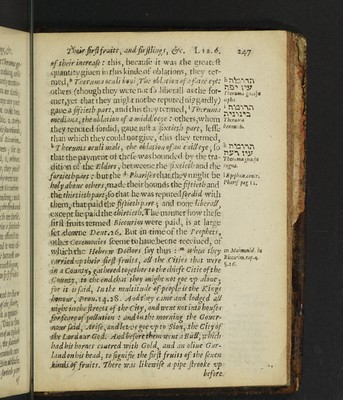 Their first fruits, and firstlings, &c. LIB. 6. 247
of their increase: this, because it was the greatest
quantity given in this kinde of oblations, they ter-
med, Theruma oculi boni, The oblation of a faire eye:
others (though they were not so liberall as the for-
mer, yet that they might not be reputed niggardly)
gave a fiftieth part, and this they termed, Theruma
mediana, the oblation of a middle eye: others, whom
they reputed sordid, gave just a sixtieth part, lesse
than which they could not give, this they termed,
Theruma oculi mali, the oblation of an evill eye; so
that the payment of these was bounded by the tra-
dition of the Elders, betweene the sixtieth and the
fortieth part: but the Pharises that they might be
holy above others, made their bounds the fiftieth and
the thirtieth part, so that he was reputed sordid with
them, that paid the fiftieth part; and none liberall,
except he paid the thirtieth. The manner how these
first fruits termed Biccurim were paid, is at large
set downe Deut. 26. But in time of the Prophets,
other Ceremonies seeme to have beene received, of
which the Hebrew Doctors say thus: m When they
carried up their first fruits, all the Cities that were
in a County, gathered together to the chiefe Citie of the
County, to the end that they might not goe up alone;
for it is said, In the multitude of people is the Kings
honour, Prov. 14. 28. And they came and lodged all
night in the streets of the City, and went not into houses
for feare of pollution: and in the morning the Gover-
nour said, Arise, and let us goe up to Sion, the City of
the Lord our God. And before them went a Bull, which
had his hornes covered with Gold, and an olive Gar-
land on his head, to signifie the first fruits of the seven
kinds of fruits. There was likewise a pipe stroke up
before
תרומה
עין יפה
תרומה
בינונית
תרומה
עין רעה
m Maimonid. in
Biccurim, cap. 4.